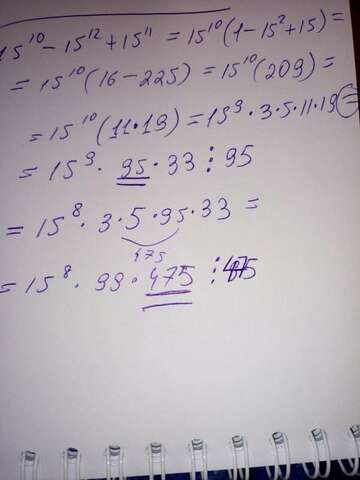 15^10 - 15^12 + 15^11 = 15^10(1 - 15^2 + 15) =
= 15^10(16 - 225) = 15^10(209) =
= 15^10(11·19) = 15^9·3·5·11·19 =
= 15^9 · 95 · 33 ⋮ 95
= 15^8 · 3 · 5 · 95 · 33 =
475
= 15^8 · 99 · 475 ⋮ 475